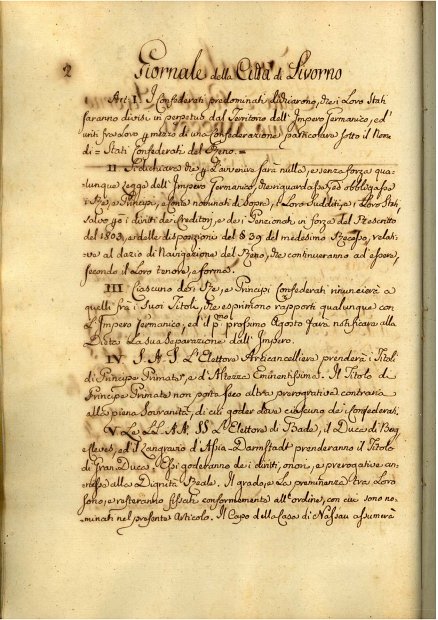 2
Giornale della Città di Livorno
Art. I. I Confederati predominati dichiarono, che i Loro Stati
saranno divisi in perpetuo dal Territorio dell' Impero Germanico, ed'
uniti fra loro p mezzo di una Confederazione particolare sotto il Nome
di = Stati Confederati del Reno. =
II Si dichiara che p L'avvenire sarà nulla, e senza forza qua-
lunque Legge dell' Impero Germanico, che riguardasse, ed obbligasse
i Rè, e Principi, e Conti nominati di Sopra, i Loro Sudditi, e i Loro Stati,
salvo p i diritti de Creditori, e de i Pensionati in forza del Rescritto
del 1803, e delle disposizioni del § 39 del medesimo Recesso, relati-
ve al dazio di Navigazione del Reno, che continueranno ad essere,
secondo il Loro tenore, e forma.
III Ciascuno dei Rè, e Principi Confederati rinuncierà a
quelli fra i Suoi Titoli, che esprimono rapporti qualunque con
L'Impero Germanico, ed il pmo prossimo Agosto farà notificare alla
Dieta La sua Separazione dall' Impero.
IV. S. A. S. L'Elettore Arcicancelliere prenderà i Titoli
di Principe Primate, e d'Altezza Eminentissima. Il Titolo di
Principe Primate non porta seco altra prerogativa contraria
alla piena Sovranità, di cui goder deve ciascuno dei Confederati.
V. Le LL. AA. SS. L'Elettore di Bade, il Duca di Berg
e Cleves, ed il Langravio d'Assia-Darmstadt prenderanno il Titolo
di Gran Duca. Essi goderanno de i diritti, onori, e prerogative an-
nesse alla Dignità Reale. Il grado, e La preminenza tra Loro
sono, e resteranno fissati conformemente all' ordine, con cui sono no-
minati nel presente Articolo. Il Capo della Casa di Nassau assumerà